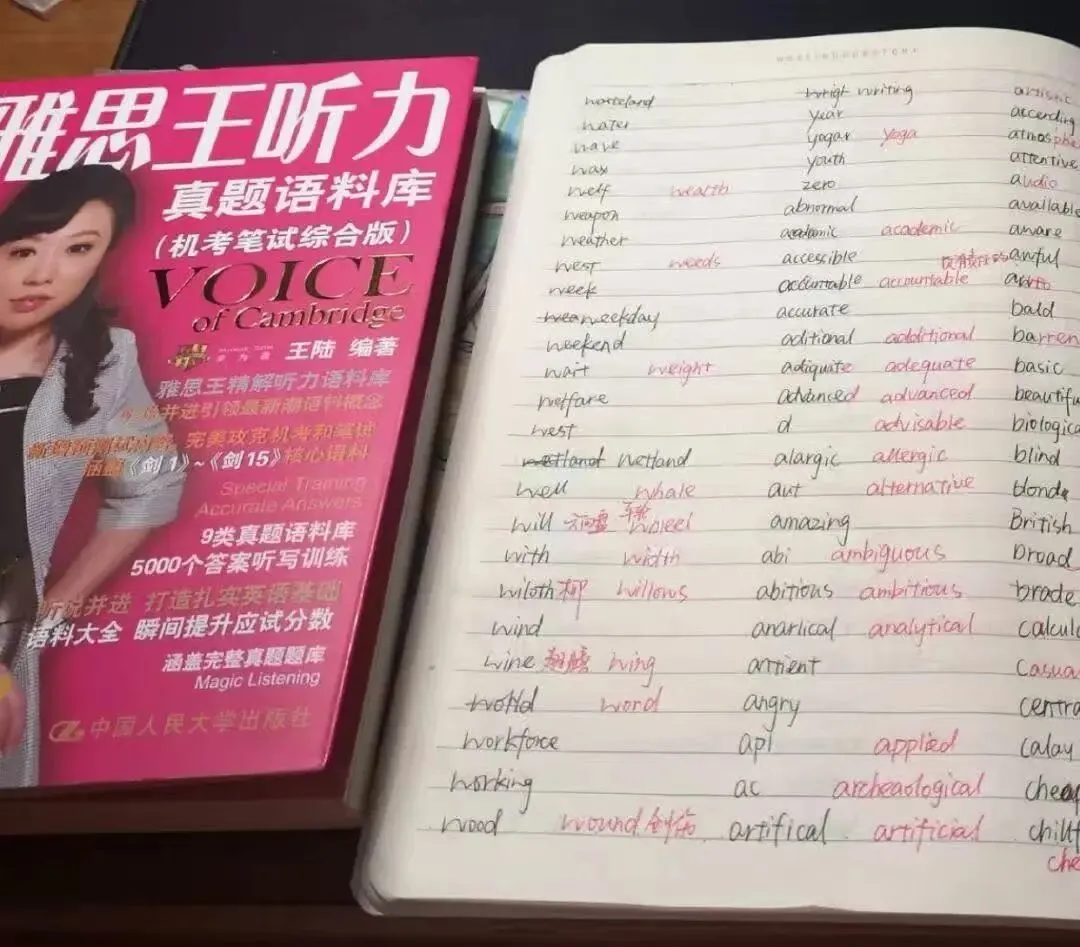 雅思王听力
真题语料库
（机考笔试综合版）
VOICE
of Cambridge
王陆 编著
雅思王精解听力语料库
并进引领最新潮语料概念
完美攻克机考和笔试
涵盖《剑1》~《剑15》核心语料
Special Training
Accurate Answers
9类真题语料库
5000个答案听写训练
听说并进 打造扎实英语基础
语料大全 瞬间提升应试分数
涵盖完整真题题库
Magic Listening
中国人民大学出版社
wasteland
water
wave
wax
welf wealth
weapon
weather
west weeds
week
wea weekday
weekend
wait weight
welfare
west
wetland wetland
well whale
will 方向盘 车轮 wheel
with width
wiloth 柳 willows
wind
wine 翅膀 wing
world word
workforce
working
wood wound 创伤
wrigt writing
year
yogar yoga
youth
zero
abnormal
academic academic
accessible
accuntable accountable
accurate
aditional additional
adiquate adequate
advanced advanced
d advisable
alargic allergic
aut alternative
amazing
abi ambiguous
abitious ambitious
anarlical analytical
antient
angry
apl applied
ac archeaological
artifical artificial
artistic
accending
atmosphe
attentive
audio
available
aware
awful
bald
barren
basic
beautifu
biologica
blind
blonde
British
broad
brade
calcula
casua
centra
calay
cheap
chillf
che